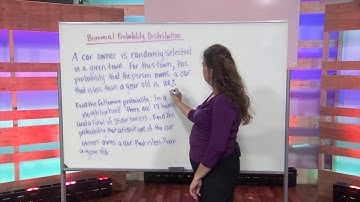 Binomial Probability Distribution
A car owner is randomly selected
in a given town. For this town, the
probability that the person owns a car
that is less than a year old is
Find the following probability. In a
neighborhood there are 12 homes
and a total of
probability that at least one of the car
owners owns a car that is less than
a year old.